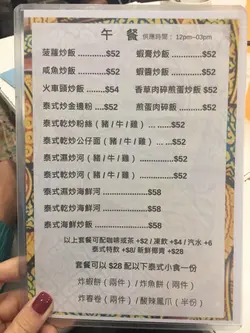 午 餐 供應時間： 12pm~03pm
菠蘿炒飯 ................. $52 蝦膏炒飯 .................$52
咸魚炒飯 ................. $52 蝦醬炒飯 .................$52
火車頭炒飯 .............$54 香草肉碎煎蛋炒飯 ...$52
泰式炒金邊粉 .........$52 煎蛋肉碎飯 .............$52
泰式乾炒粉絲（豬 / 牛 / 雞） ... ......$52
泰式乾炒公仔面（豬 / 牛 / 雞） ... ...$52
泰式濕炒河（ 豬 / 牛 / 雞） ............$52
泰式乾炒河（ 豬 / 牛 / 雞） ............$52
泰式濕炒海鮮河 ................. $58
泰式乾炒海鮮河 ................. $58
泰式海鮮炒飯 ................. $58
以上套餐可配咖啡或茶 +$2 / 凍飲 +$4 / 汽水 +6
泰式特飲 +$8/ 新鮮椰青 +$28
套餐可以 $28 配以下泰式小食一份
炸蝦餅（兩件） / 炸魚餅（兩件）
炸春卷（兩件） / 酸辣鳳爪（半份）